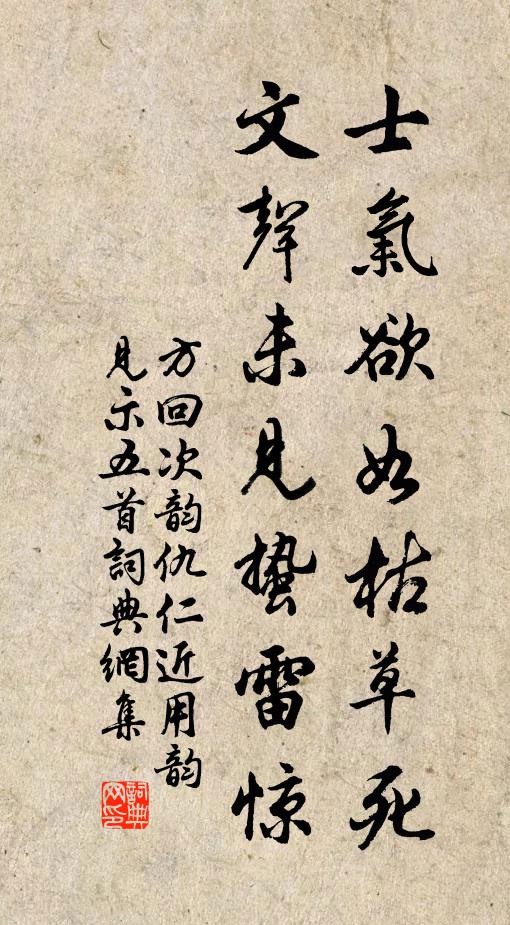 士氣欲如枯草死
文聲未見蟄雷惊
方回次韵仇仁近用韵
見示五首詞典網集
詞典網印